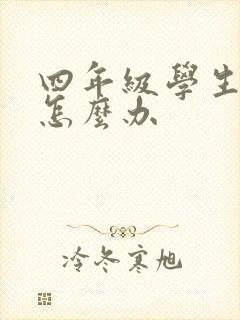 四年級學生
怎麼办
冷冬寒旭